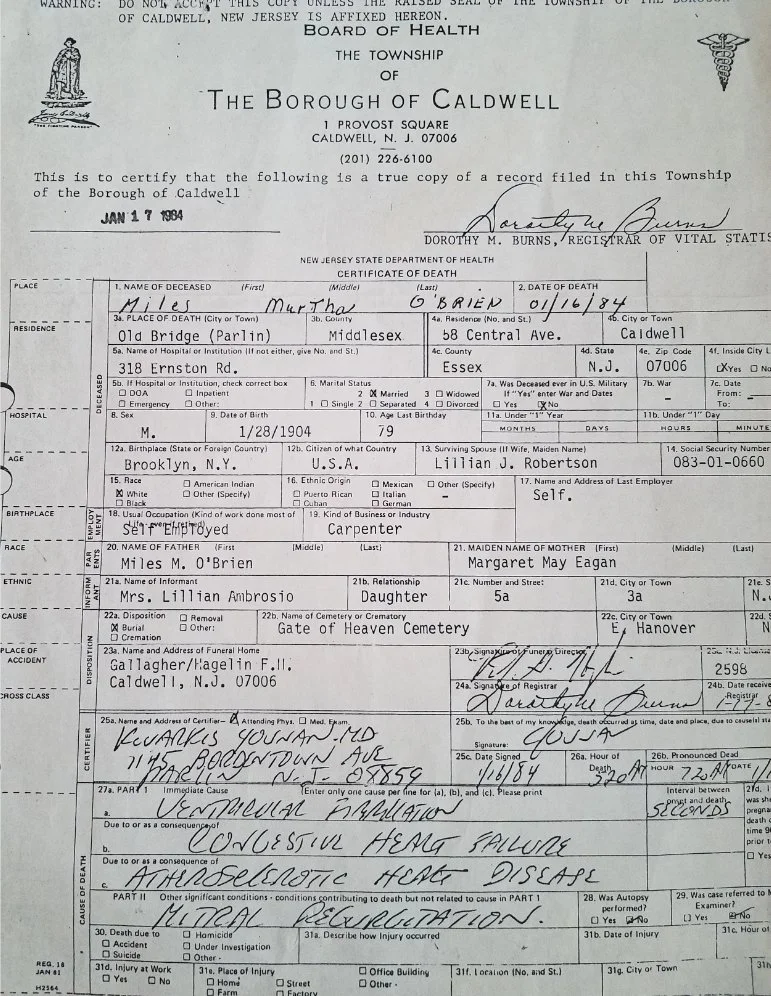 WARNING: DO NOT ACCEPT THIS COPY UNLESS THE RAISED SEAL OF THE TOWNSHIP OF THE BOROUGH
OF CALDWELL, NEW JERSEY IS AFFIXED HEREON.
BOARD OF HEALTH
THE TOWNSHIP
OF
THE BOROUGH OF CALDWELL
1 PROVOST SQUARE
CALDWELL, N. J. 07006
(201) 226-6100
This is to certify that the following is a true copy of a record filed in this Township
of the Borough of Caldwell
JAN 17 1984
DOROTHY M. BURNS, REGISTRAR OF VITAL STATIS
NEW JERSEY STATE DEPARTMENT OF HEALTH
CERTIFICATE OF DEATH
PLACE
1. NAME OF DECEASED (First) (Middle) (Last) 2. DATE OF DEATH
Miles Murtha O'BRIEN 01/16/84
RESIDENCE
3a. PLACE OF DEATH (City or Town) 3b. County 4a. Residence (No. and St.) 4b. City or Town
Old Bridge (Parlin) Middlesex 58 Central Ave. Caldwell
5a. Name of Hospital or Institution (If not either, give No. and St.) 4c. County 4d. State 4e. Zip Code 4f. Inside City L
318 Ernston Rd. Essex N.J. 07006 X Yes No
DECEASED
5b. If Hospital or Institution, check correct box 6. Marital Status 7a. Was Deceased ever in U.S. Military 7b. War 7c. Date
DOA Inpatient 2 X Married 3 Widowed If "Yes" enter War and Dates From:
Emergency Other: 1 Single 2 Separated 4 Divorced Yes X No To:
HOSPITAL
8. Sex 9. Date of Birth 10. Age Last Birthday 11a. Under "1" Year 11b. Under "1" Day
M. 1/28/1904 79 MONTHS DAYS HOURS MINUTE
AGE
12a. Birthplace (State or Foreign Country) 12b. Citizen of what Country 13. Surviving Spouse (If Wife, Maiden Name) 14. Social Security Number
Brooklyn, N.Y. U.S.A. Lillian J. Robertson 083-01-0660
15. Race American Indian 16. Ethnic Origin Mexican Other (Specify) 17. Name and Address of Last Employer
X White Other (Specify) Puerto Rican Italian - Self.
Black Cuban German
BIRTHPLACE
EMPLOYMENT
18. Usual Occupation (Kind of work done most of 19. Kind of Business or Industry
Self Employed Carpenter
RACE
PARENTS
20. NAME OF FATHER (First (Middle) (Last) 21. MAIDEN NAME OF MOTHER (First) (Middle) (Last)
Miles M. O'Brien Margaret May Eagan
ETHNIC
INFORMANT
21a. Name of Informant 21b. Relationship 21c. Number and Street 21d. City or Town 21e. S
Mrs. Lillian Ambrosio Daughter 5a 3a N.
CAUSE
22a. Disposition Removal 22b. Name of Cemetery or Crematory 22c. City or Town 22d. S
X Burial Other: Gate of Heaven Cemetery E. Hanover N
Cremation
PLACE OF
ACCIDENT
DISPOSITION
23a. Name and Address of Funeral Home 23b. Signature of Funeral Director
Gallagher/Kagelin F.H. 2598
Caldwell, N.J. 07006 24a. Signature of Registrar 24b. Date receive
Registrar
CROSS CLASS
CERTIFIER
25a. Name and Address of Certifier- Attending Phys. Med. Exam. 25b. To the best of my knowledge, death occurred at time, date and place, due to cause(s) sta
KWARKIS YOUNAN MD Signature:
1145 BORDENTOWN AVE 25c. Date Signed 26a. Hour of Death 26b. Pronounced Dead
PARLIN N.J. 08859 1/16/84 HOUR DATE
27a. PART 1 Immediate Cause (Enter only one cause per line for (a), (b), and (c). Please print Interval between 27d. I
a. VENTRICULAR FIBRILLATION onset and death SECONDS was sh
Due to or as a consequence of
b. CONGESTIVE HEART FAILURE
Due to or as a consequence of
c. ATHEROSCLEROTIC HEART DISEASE
CAUSE OF DEATH
PART II Other significant conditions - conditions contributing to death but not related to cause in PART 1 28. Was Autopsy performed? 29. Was case referred to M Examiner?
MITRAL REGURGITATION. Yes No Yes No
30. Death due to Homicide 31a. Describe how Injury occurred 31b. Date of Injury 31c. Hour of
Accident Under Investigation
Suicide Other -
REG. 18
JAN 81
H2564
31d. Injury at Work 31e. Place of Injury Office Building 31f. Location (No. and St.) 31g. City or Town 31h
Yes No Home Street Other -
Farm Factory